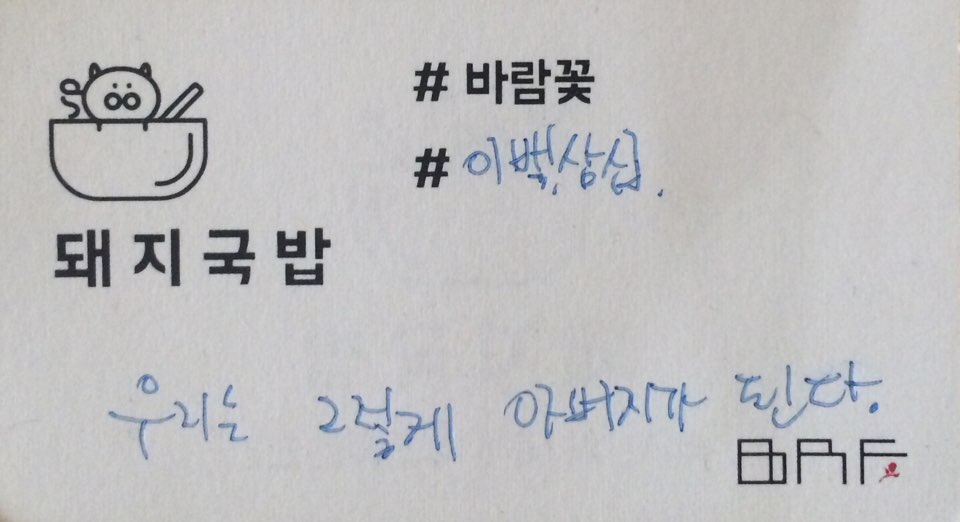 # 바람꽃
# 이백,삼십.
돼지국밥
우리는 그렇게 아버지가 된다.
BRF